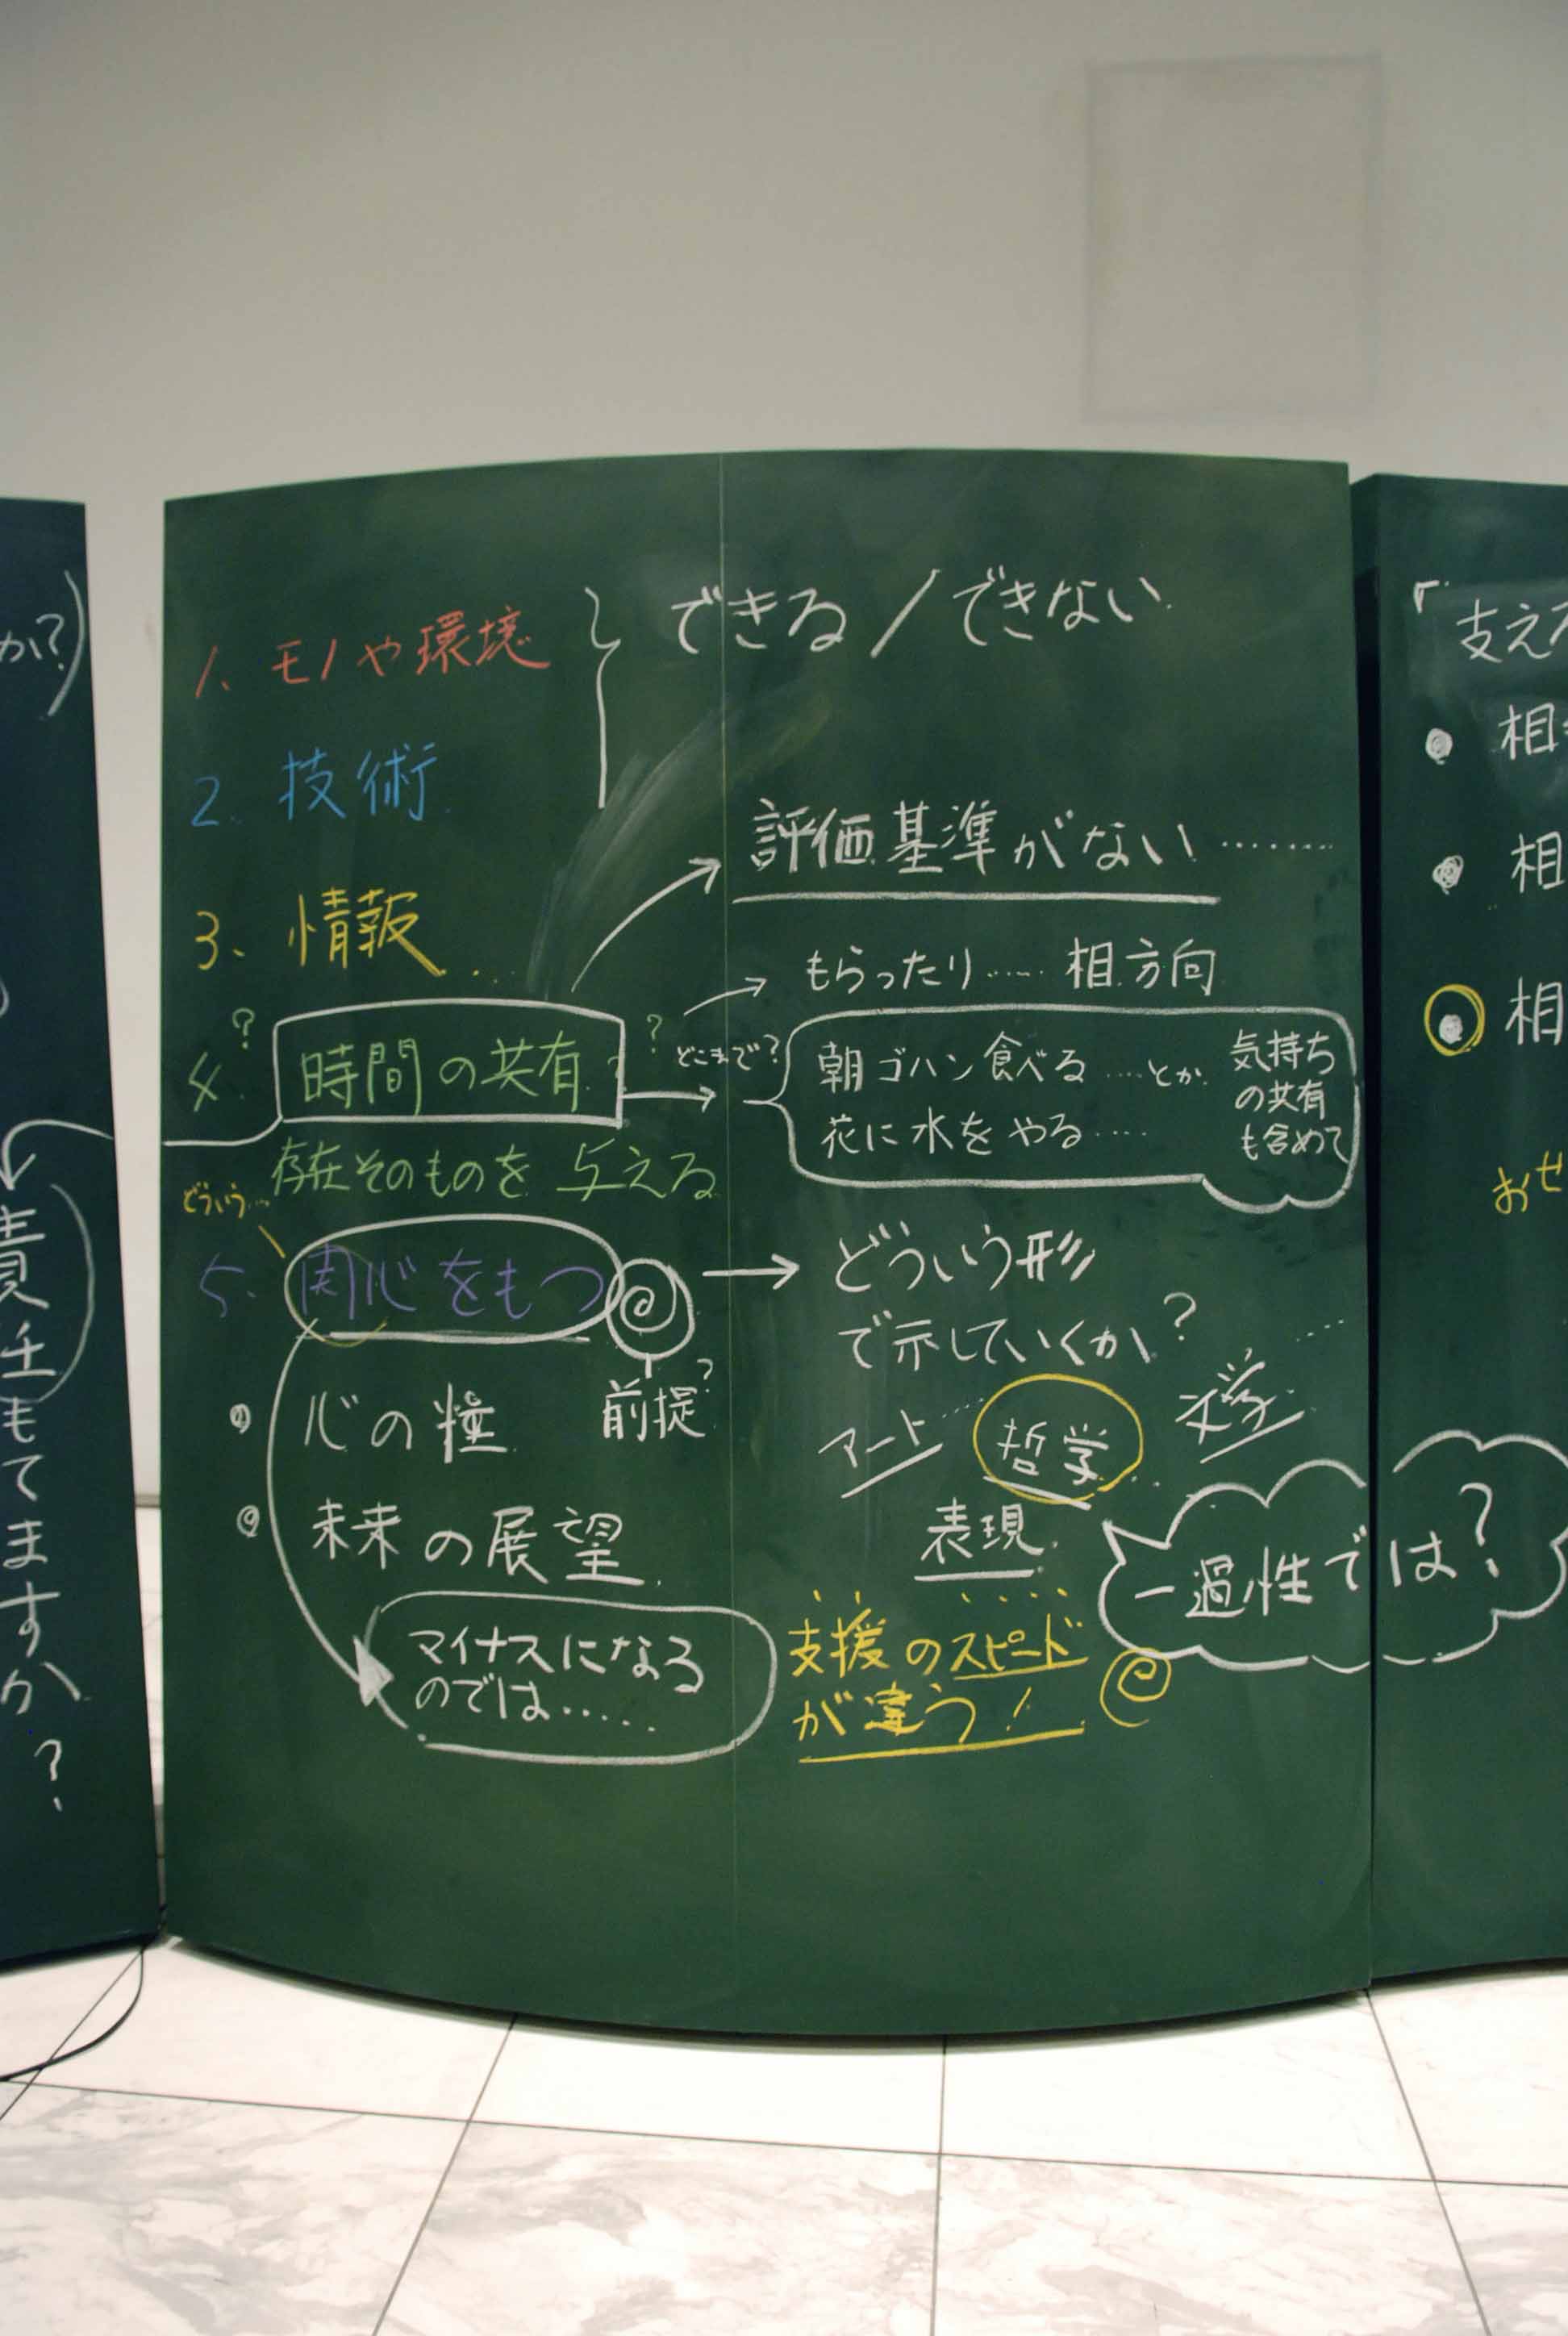 か?)
責任もてますか?
1、モノや環境
できる/できない
2. 技術.
3、情報...
評価基準がない........
もらったり..... 相方向
4. ? 時間の共有.? ?
どこまで?
朝ゴハン食べる ....とか.
花に水をやる....
気持ち
の共有
も含めて
存在そのものを与える
どういう...
5. 関心をもつ
前提?
どういう形
で示していくか? ....
アート.... 哲学... 文学
表現.
心の
未来の展望.
マイナスになる
のでは.....
支援のスピード
が違う!
一過性では?
「支え
相
相
相
おせ